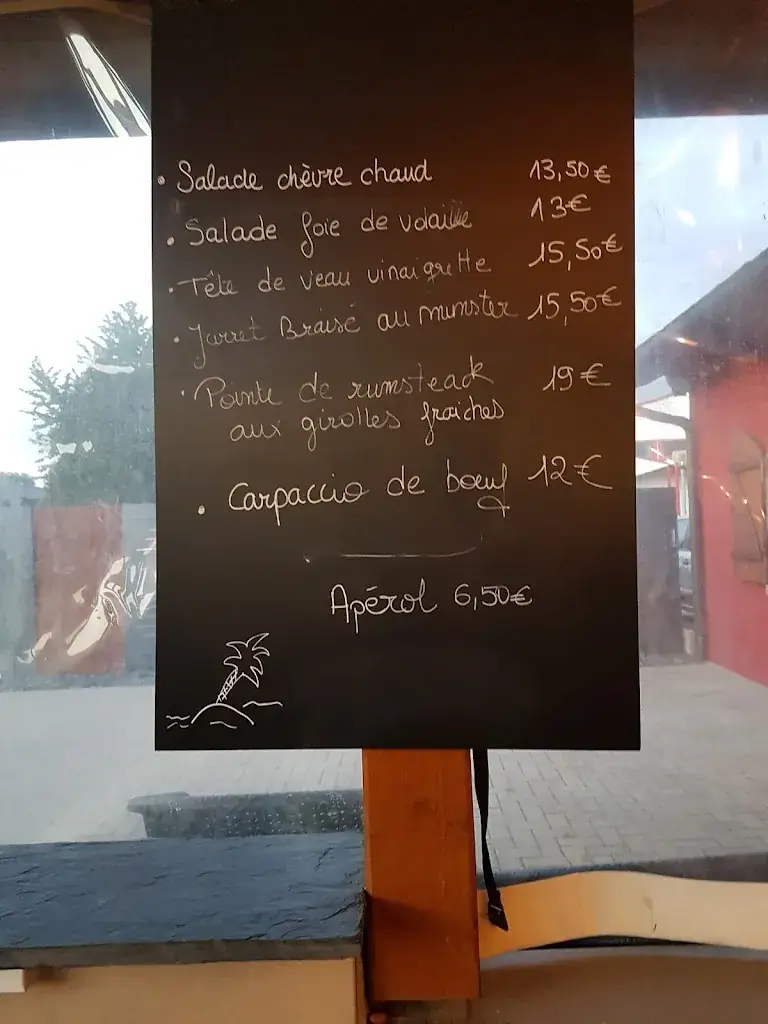 • Salade chèvre chaud 13,50€
• Salade foie de volaille 13€
• Tête de veau vinaigrette 15,50€
• Jarret Braisé au munster 15,50€
• Pointe de rumsteack 19€
aux girolles fraiches
• Carpaccio de bœuf 12€
Apérol 6,50€